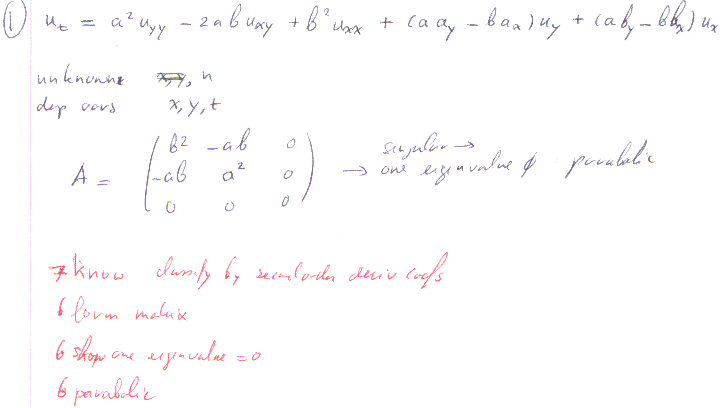 ① u_t = a² u_yy − 2ab u_xy + b² u_xx + (a a_y − b a_x) u_y + (a b_y − b b_x) u_x
unknowns u
dep vars x, y, t
A = ( b² −ab 0
−ab a² 0
0 0 0 )
singular →
→ one eigenvalue 0 parabolic
7 know classify by second order deriv coefs
6 form matrix
6 show one eigenvalue = 0
6 parabolic